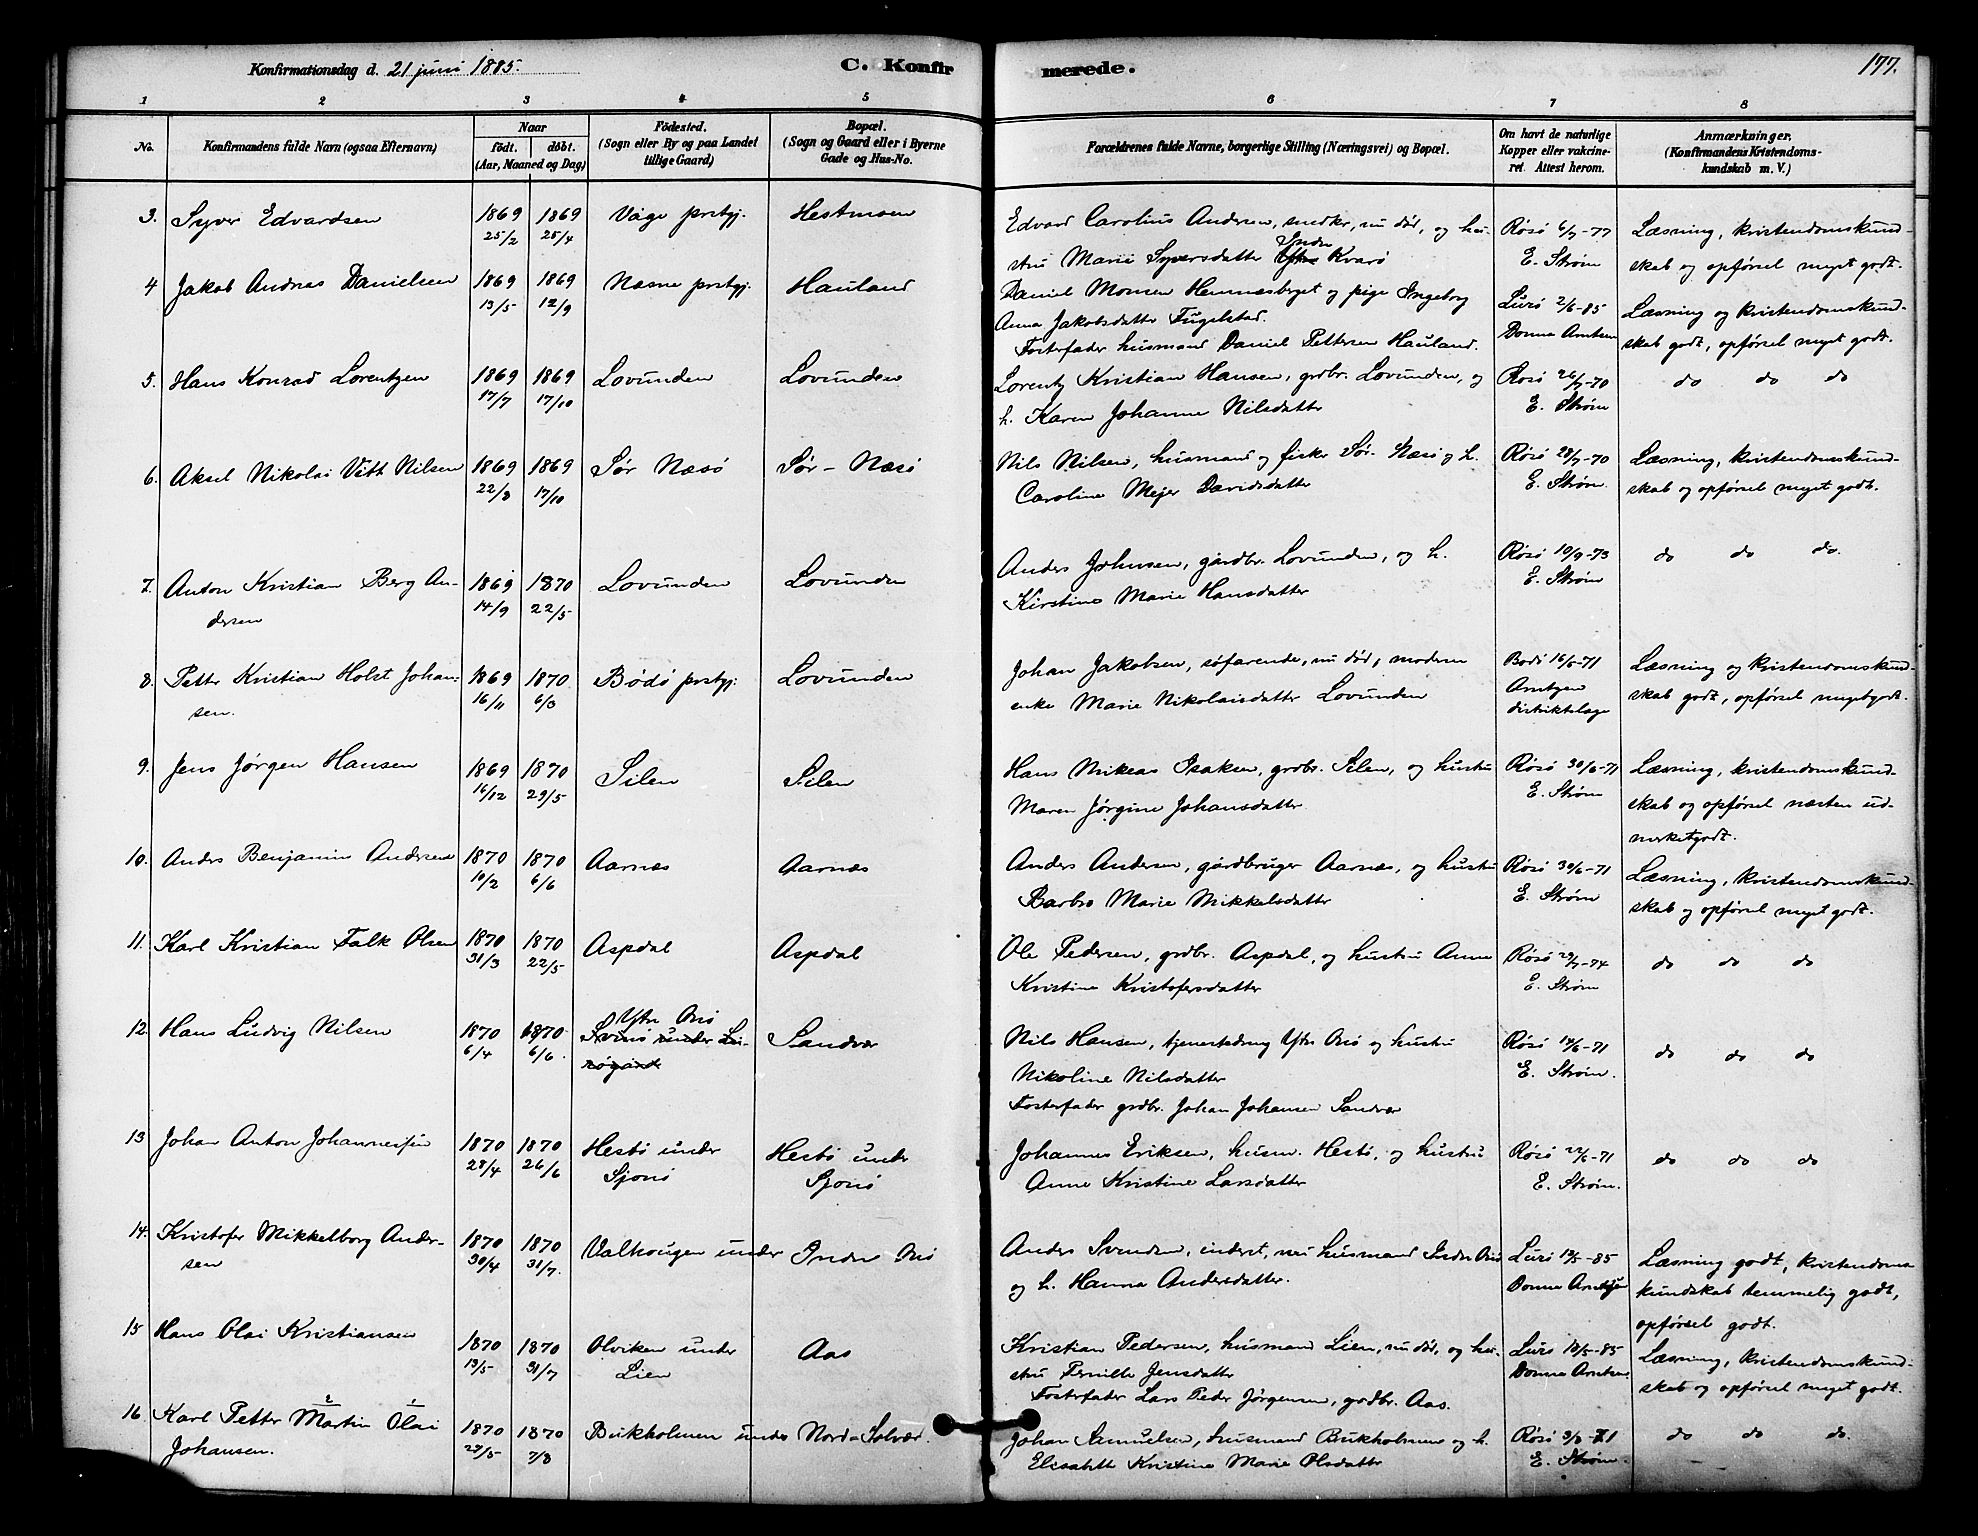 Konfirmationsdag d. 21 juni 1885.
C. Konfirmerede.
177.
1 2 3 4 5 6 7 8
No.
Konfirmandens fulde Navn (ogsaa Efternavn)
Naar
födt. döbt.
(Aar, Maaned og Dag)
Födested.
(Sogn eller By og paa Landet
tillige Gaard)
Bopæl.
(Sogn og Gaard eller i Byerne
Gade og Hus-No.
Forældrenes fulde Navne, borgerlige Stilling (Næringsvei) og Bopæl.
Om havt de naturlige
Kopper eller vakcine-
ret. Attest herom.
Anmærkninger.
(Konfirmandens Kristendoms-
kundskab m. V.)
3. Syver Edvardsen 1869 1869 Våge prstgj. Hestmoen Edvard Carolius Andersen, snedkr, nu död, og hu- Røsö 6/7-77 Læsning, kristendomskund-
25/2 25/4 stru Marie Syversdatter Ytre Indre Kvarö E. Strøm skab og opförsel meget godt.
4 Jakob Andreas Danielsen 1869 1869 Næsne prstgj. Hauland Daniel Monsen Hemnesberget og pige Ingeborg Lurö 2/6-85 Læsning og kristendomskund-
13/5 12/9 Anna Jakobsdatter Fugelstad. Donna Arntsen skab godt, opförsel meget godt.
Fosterfader husmand Daniel Pettersen Hauland.
5. Hans Konrad Lorentzen 1869 1869 Lovunden Lovunden Lorentz Kristian Hansen, grdbr. Lovunden, og Røsö 26/7-70 do do do
17/7 17/10 h. Karen Johanne Nilsdatter E. Strøm
6. Aksel Nikolai Vitt Nilsen 1869 1869 Sør Næsö Sør-Næsö Nils Nilsen, husmand og fisker Sør-Næsö og h. Røsö 28/7-70 Læsning, kristendomskund-
22/8 17/10 Caroline Mejer Davidsdatter E. Strøm. skab og opförsel meget godt.
7. Anton Kristian Berg An- 1869 1870 Lovunden Lovunden Anders Johnsen, gårdbr. Lovunden, og h. Røsö 10/9-73 do do do.
dersen 14/9 22/5 Kirstine Marie Hansdatter E. Strøm
8. Petter Kristian Holst Johan- 1869 1870 Bodö prstgj. Lovunden Johan Jakobsen, söfarende, nu död, moderen Bodö 16/6-71 Læsning og kristendomskund-
sen. 16/11 6/3 enke Marie Nikolaisdatter Lovunden Arntzen skab godt, opförsel meget godt.
distriktslæge
9. Jens Jørgen Hansen 1869 1870 Silen Silen Hans Mikeas Isaksen, grdbr. Silen, og hustru Røsö 30/6-71 Læsning, kristendomskund-
16/12 29/5 Maren Jørgine Johansdatter E. Strøm skab og opförsel næsten ud-
merketgodt.
10. Anders Benjamin Andersen 1870 1870 Aarnæs Aarnæs Anders Andersen, gårdbruger Aarnæs, og hustru Røsö 30/6-71 Læsning, kristendomskund-
10/2 6/6 Barbro Marie Mikkelsdatter E. Strøm skab og opförsel meget godt.
11. Karl Kristian Falk Olsen 1870 1870 Aspdal Aspdal Ole Pedersen, grdbr. Aspdal, og hustru Anne Røsö 29/7-74 do do do
31/3 22/5 Kristine Kristofersdatter E. Strøm
12. Hans Ludvig Nilsen 1870 1870 Ytre Onö Sandvær Nils Hansen, tjenestedreng Ytre Onö og hustru Røsö 17/6-71 do do do
6/4 6/6. Nikoline Nilsdatter E. Strøm.
Fosterfader grdbr. Johan Johansen Sandvær
13 Johan Anton Johannessen 1870 1870 Hestö under Hestö under Johannes Eriksen, husm. Hestö, og hustru Røsö 22/6-71 do do do
28/4 26/6 Sjonö Sjonö Anne Kristine Larsdatter E. Strøm.
14. Kristofer Mikkelborg Ander- 1870 1870 Valhougen under Indre Onö Anders Svendsen, inderst, nu husmand Indre Onö Lurö 19/5-85 Læsning godt, kristendoms
sen 30/4 31/7. og h. Hanna Andersdatter. Donna Arntzen kundskab temmelig godt,
opförsel godt.
15 Hans Olai Kristiansen 1870 1870 Olviken under Aas Kristian Pedersen, husmand Lien, nu död, og hu- Lurö 18/5-85 Læsning, kristendomskund-
13/5 31/7 Lien stru Pernille Jensdatter Donna Arntsen skab og opförsel meget godt.
Fosterfader Lars Peder Jørgensen, godbr. Aas.
16 Karl Petter Martin Olai 1870 1870 Bukholmen under Nord-Solvær Johan Samuelsen, husmand Bukholmen og h. Røsö 3/8-71 do do do.
Johansen. 29/5 7/8 Elisabeth Kristine Marie Olsdatter E. Strøm.